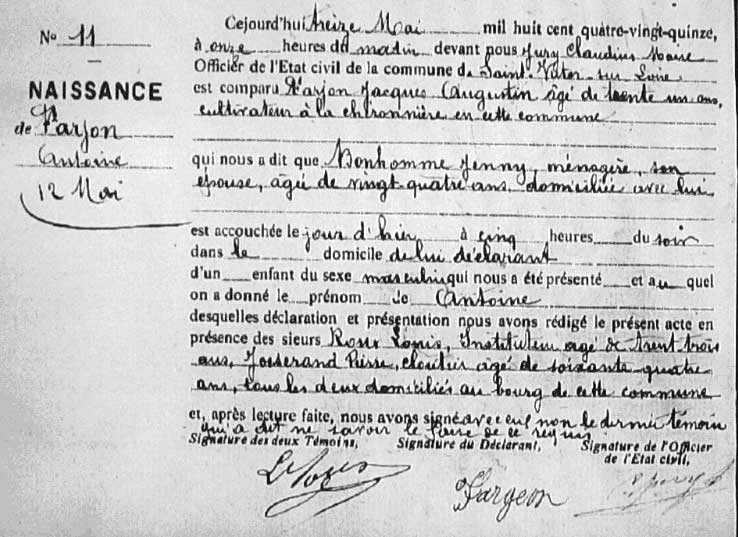 Nº 11
NAISSANCE
de Farjon
Antoine
12 Mai
Cejourd'hui treize Mai mil huit cent quatre-vingt-quinze,
à onze heures du matin devant nous Jury Claudius Maire
Officier de l'Etat civil de la commune de Saint-Victor-sur-Loire
est comparu Farjon Jacques Augustin âgé de trente un ans,
cultivateur à la chironnière en cette commune
qui nous a dit que Bonhomme Jenny, ménagère, son
épouse, âgée de vingt-quatre ans, domiciliée avec lui
est accouchée le jour d'hier à cinq heures du soir
dans le domicile de lui déclarant
d'un enfant du sexe masculin qui nous a été présenté et au quel
on a donné le prénom de Antoine
desquelles déclaration et présentation nous avons rédigé le présent acte en
présence des sieurs Louis, Instituteur âgé de trent-trois
ans, Josserand Pierre, cloutier âgé de soixante quatre
ans, tous les deux domiciliés au bourg de cette commune
et, après lecture faite, nous avons signé avec eux non le dernier témoin
qui a dit ne savoir le faire de ce requis
Signature des deux Témoins, Signature du Déclarant, Signature de l'Officier
de l'Etat civil,
Fargeon